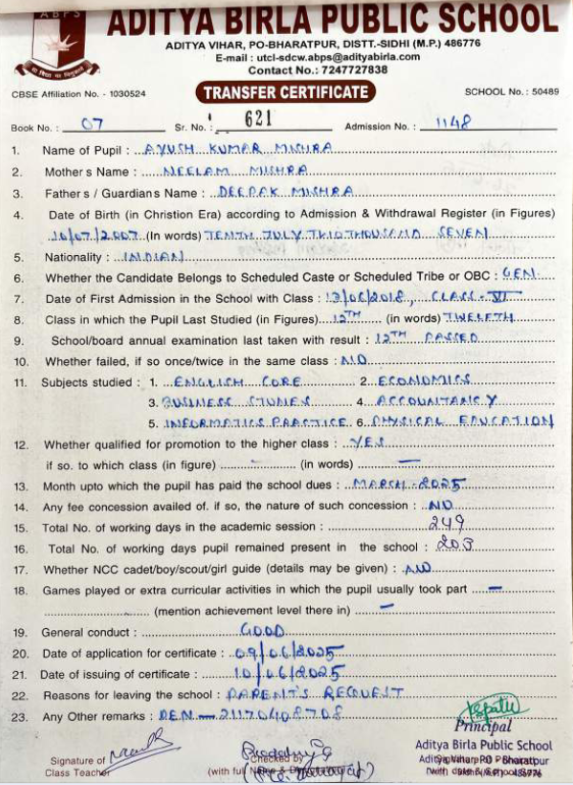 ABPS
ADITYA BIRLA PUBLIC SCHOOL
ADITYA VIHAR, PO-BHARATPUR, DISTT.-SIDHI (M.P.) 486776
E-mail : utcl-sdcw.abps@adityabirla.com
Contact No.: 7247727838
CBSE Affiliation No. - 1030524 TRANSFER CERTIFICATE SCHOOL No. : 50489
Book No. : 07 Sr. No. : 621 Admission No. : 1148
1. Name of Pupil : AYUSH KUMAR MISHRA
2. Mother's Name : NEELAM MISHRA
3. Father's / Guardian's Name : DEEPAK MISHRA
4. Date of Birth (in Christion Era) according to Admission & Withdrawal Register (in Figures)
10/07/2007 (In words) TENTH JULY TWO THOUSAND SEVEN
5. Nationality : INDIAN
6. Whether the Candidate Belongs to Scheduled Caste or Scheduled Tribe or OBC : GEN
7. Date of First Admission in the School with Class : 13/06/2018, CLASS - VI
8. Class in which the Pupil Last Studied (in Figures) 12TH (in words) TWELFTH
9. School/board annual examination last taken with result : 12TH PASSED
10. Whether failed, if so once/twice in the same class : NO
11. Subjects studied : 1. ENGLISH CORE 2. ECONOMICS
3. BUSINESS STUDIES 4. ACCOUNTANCY
5. INFORMATICS PRACTICE 6. PHYSICAL EDUCATION
12. Whether qualified for promotion to the higher class : YES
if so. to which class (in figure) - (in words) —
13. Month upto which the pupil has paid the school dues : MARCH - 2025
14. Any fee concession availed of. if so, the nature of such concession : NO
15. Total No. of working days in the academic session : 249
16. Total No. of working days pupil remained present in the school : 203
17. Whether NCC cadet/boy/scout/girl guide (details may be given) : NO
18. Games played or extra curricular activities in which the pupil usually took part —
(mention achievement level there in) —
19. General conduct : GOOD
20. Date of application for certificate : 09/06/2025
21. Date of issuing of certificate : 10/06/2025
22. Reasons for leaving the school : PARENT'S REQUEST
23. Any Other remarks : PEN — 21170408708
Principal
Aditya Birla Public School
Signature of
Class Teacher
Checked by
(with full